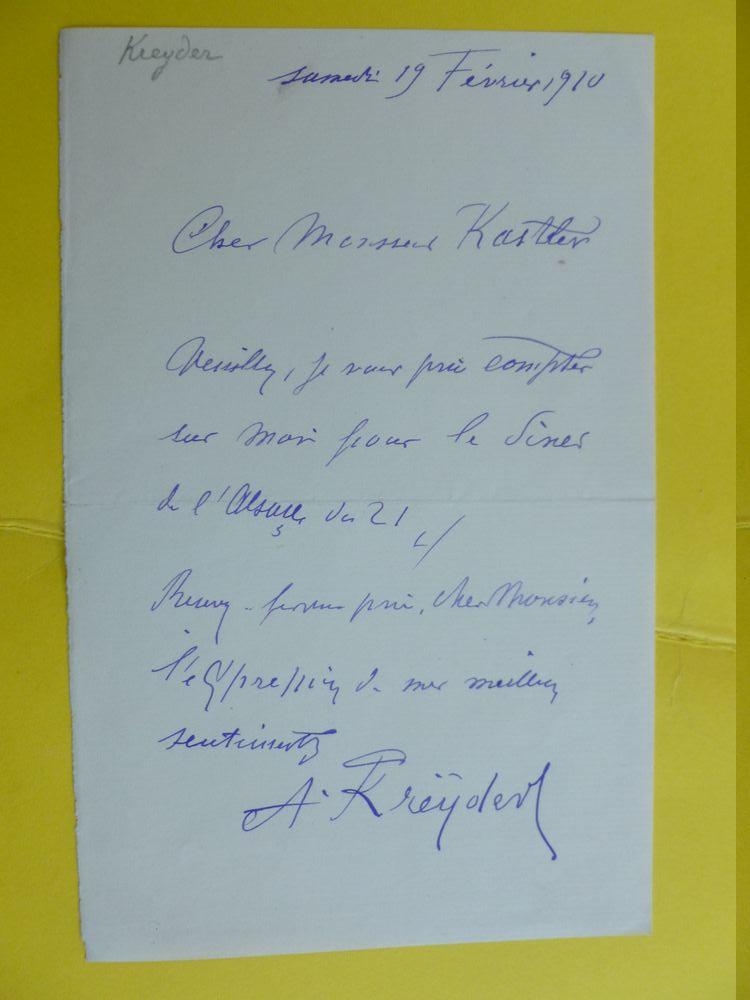 Kreyder
samedi 19 Février 1910
Cher Monsieur Kastler
Veuillez, je vous prie compter
sur moi pour le dîner
de l'Alsace du 21
Recevez je vous prie, cher Monsieur,
l'expression de mes meilleurs
sentiments
A. Kreÿder